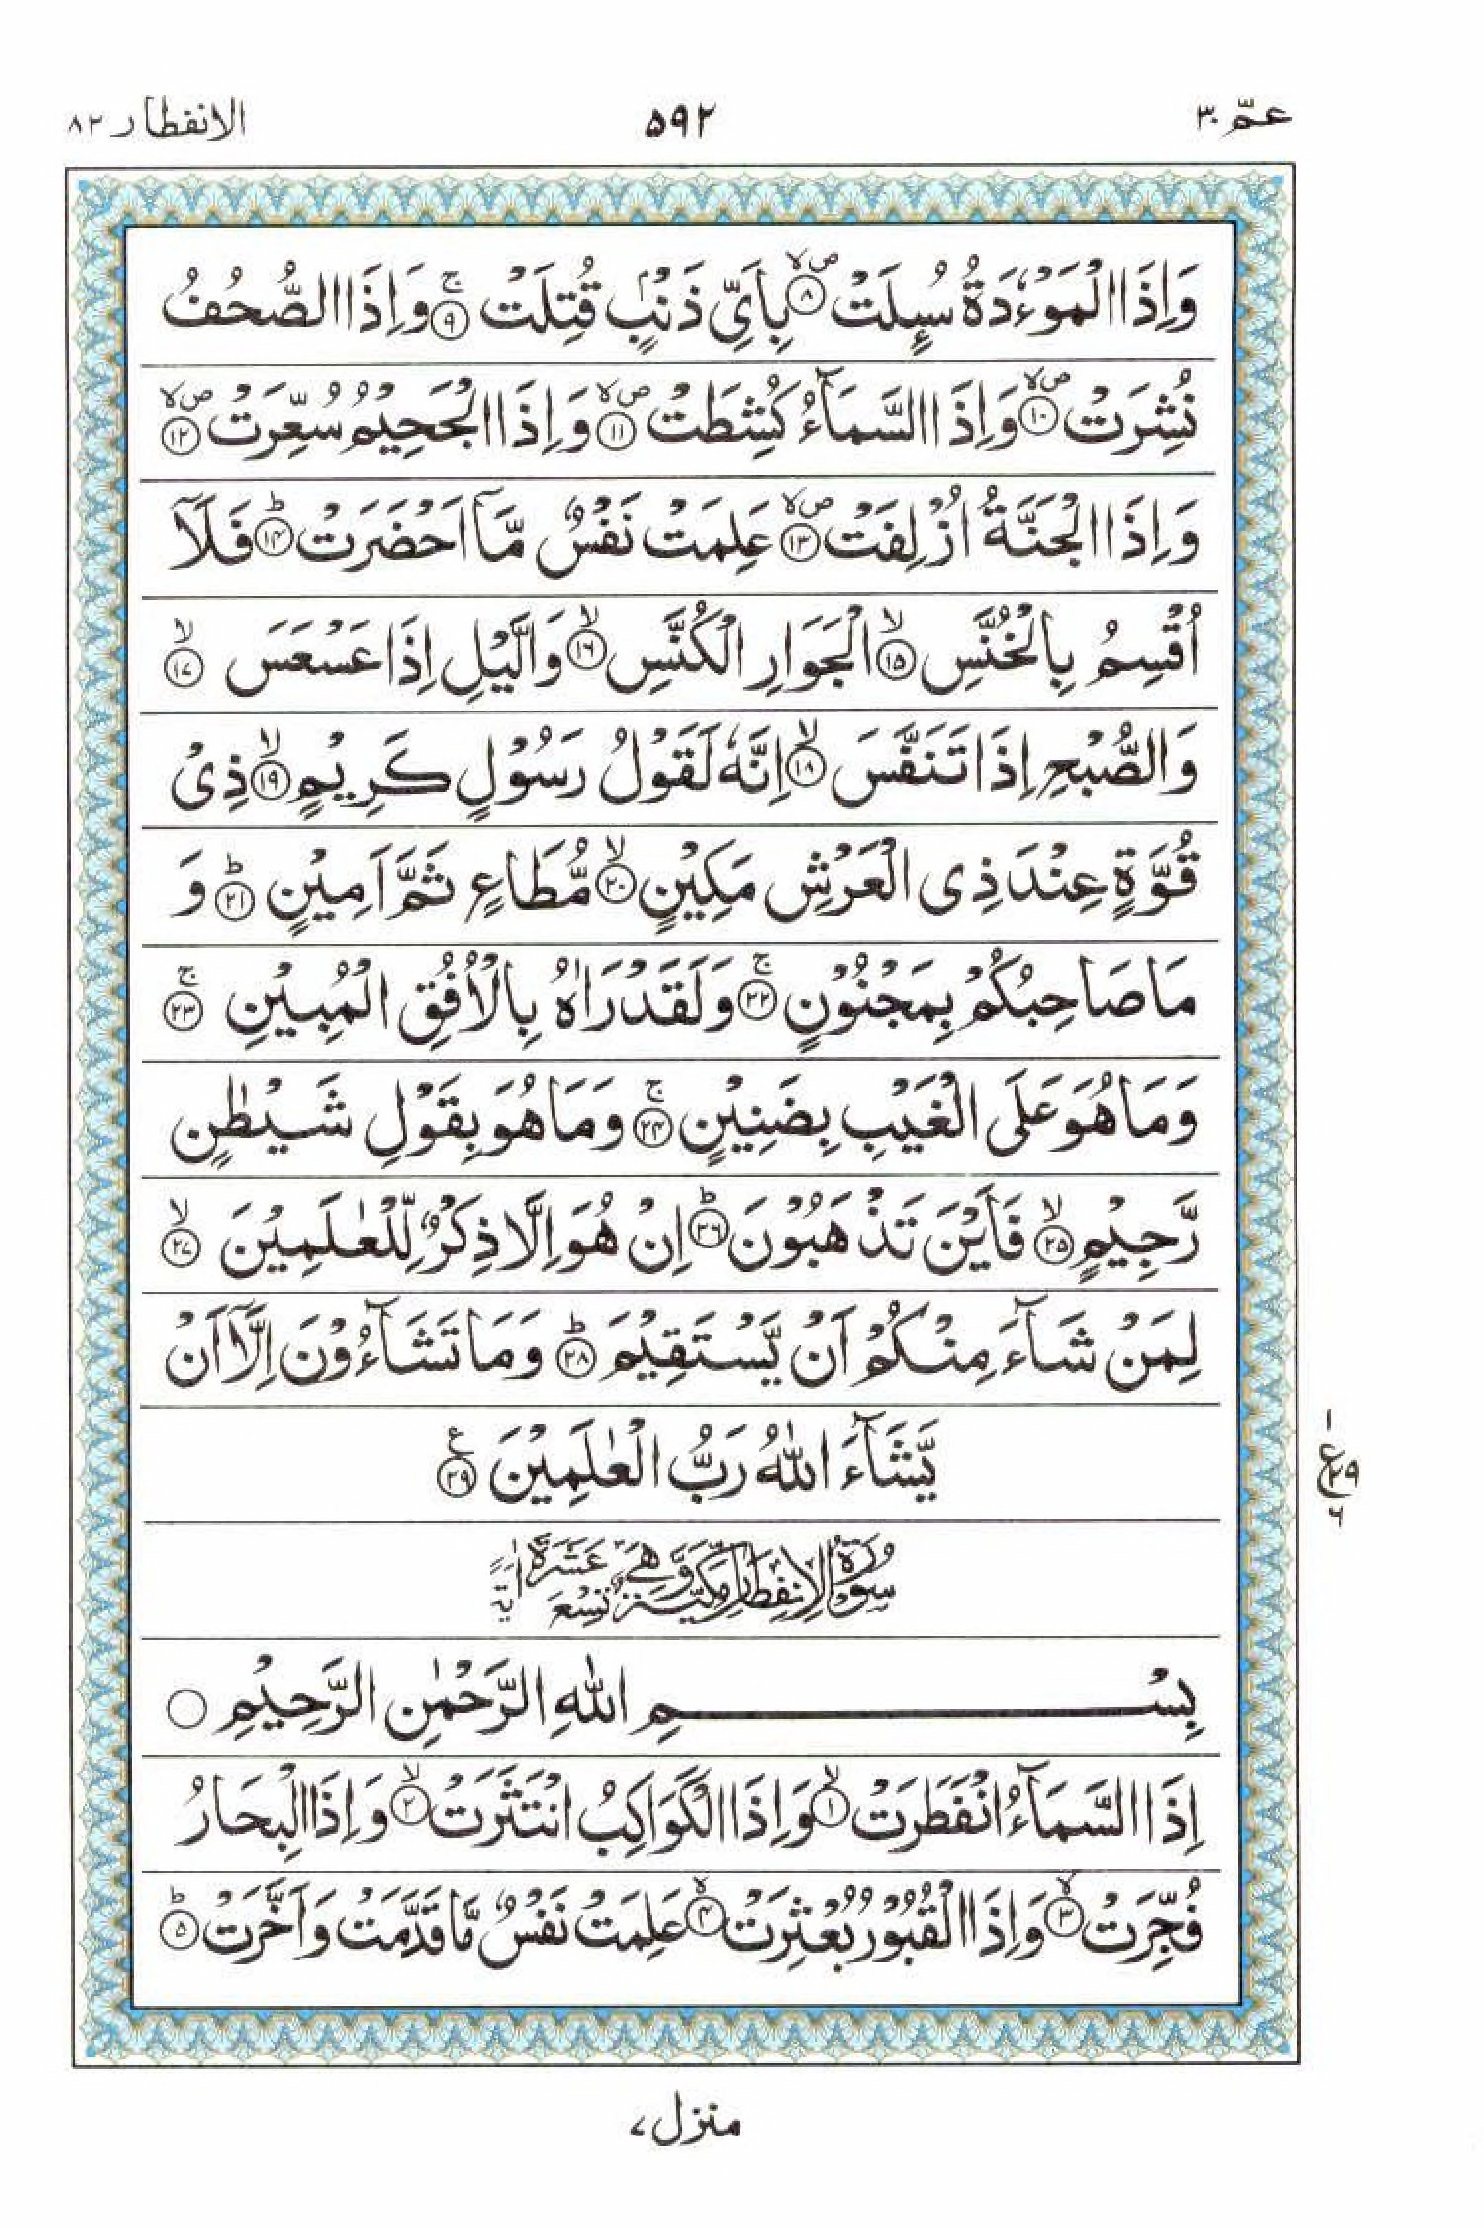 عمّ ٣٠ ٥٩٢ الانفطار ٨٢
وَاِذَا الْمَوْءٗدَةُ سُىِٕلَتْ ۪ۙ‏﴿۸﴾ بِاَىِّ ذَنْۢبٍ قُتِلَتْ ۚ‏﴿۹﴾ وَاِذَا الصُّحُفُ
نُشِرَتْ ۪ۙ‏﴿۱۰﴾ وَاِذَا السَّمَآءُ كُشِطَتْ ۪ۙ‏﴿۱۱﴾ وَاِذَا الْجَحِيْمُ سُعِّرَتْ ۪ۙ‏﴿۱۲﴾
وَاِذَا الْجَنَّةُ اُزْلِفَتْ ۪ۙ‏﴿۱۳﴾ عَلِمَتْ نَفْسٌ مَّاۤ اَحْضَرَتْ ؕ‏﴿۱۴﴾ فَلَاۤ
اُقْسِمُ بِالْخُنَّسِ ۙ‏﴿۱۵﴾ الْجَوَارِ الْكُنَّسِ ۙ‏﴿۱۶﴾ وَالَّيْلِ اِذَا عَسْعَسَ ۙ‏﴿۱۷﴾
وَالصُّبْحِ اِذَا تَنَفَّسَ ۙ‏﴿۱۸﴾ اِنَّهٗ لَقَوْلُ رَسُوْلٍ كَرِيْمٍ ۙ‏﴿۱۹﴾ ذِىْ
قُوَّةٍ عِنْدَ ذِى الْعَرْشِ مَكِيْنٍ ۙ‏﴿۲۰﴾ مُّطَاعٍ ثَمَّ اَمِيْنٍ ؕ‏﴿۲۱﴾ وَ
مَا صَاحِبُكُمْ بِمَجْنُوْنٍ ۚ‏﴿۲۲﴾ وَلَقَدْ رَاٰهُ بِالْاُفُقِ الْمُبِيْنِ ۚ‏﴿۲۳﴾
وَمَا هُوَ عَلَى الْغَيْبِ بِضَنِيْنٍ ۚ‏﴿۲۴﴾ وَمَا هُوَ بِقَوْلِ شَيْطٰنٍ
رَّجِيْمٍ ۙ‏﴿۲۵﴾ فَاَيْنَ تَذْهَبُوْنَ ؕ‏﴿۲۶﴾ اِنْ هُوَ اِلَّا ذِكْرٌ لِّلْعٰلَمِيْنَ ۙ‏﴿۲۷﴾
لِمَنْ شَآءَ مِنْكُمْ اَنْ يَّسْتَقِيْمَ ؕ‏﴿۲۸﴾ وَمَا تَشَآءُوْنَ اِلَّاۤ اَنْ
يَّشَآءَ اللّٰهُ رَبُّ الْعٰلَمِيْنَ ‏﴿۲۹﴾ ع
١ ع ٢٩ ٦
سُوْرَةُ الْاِنْفِطَارِ مَكِّيَّةٌ وَّهِيَ تِسْعَ عَشَرَةَ اٰيَةً
بِسْمِ اللّٰهِ الرَّحْمٰنِ الرَّحِيْمِ ○
اِذَا السَّمَآءُ انْفَطَرَتْ ۙ‏﴿۱﴾ وَاِذَا الْكَوَاكِبُ انْتَثَرَتْ ۙ‏﴿۲﴾ وَاِذَا الْبِحَارُ
فُجِّرَتْ ۙ‏﴿۳﴾ وَاِذَا الْقُبُوْرُ بُعْثِرَتْ ۙ‏﴿۴﴾ عَلِمَتْ نَفْسٌ مَّا قَدَّمَتْ وَاَخَّرَتْ ؕ‏﴿۵﴾
منزل ۷